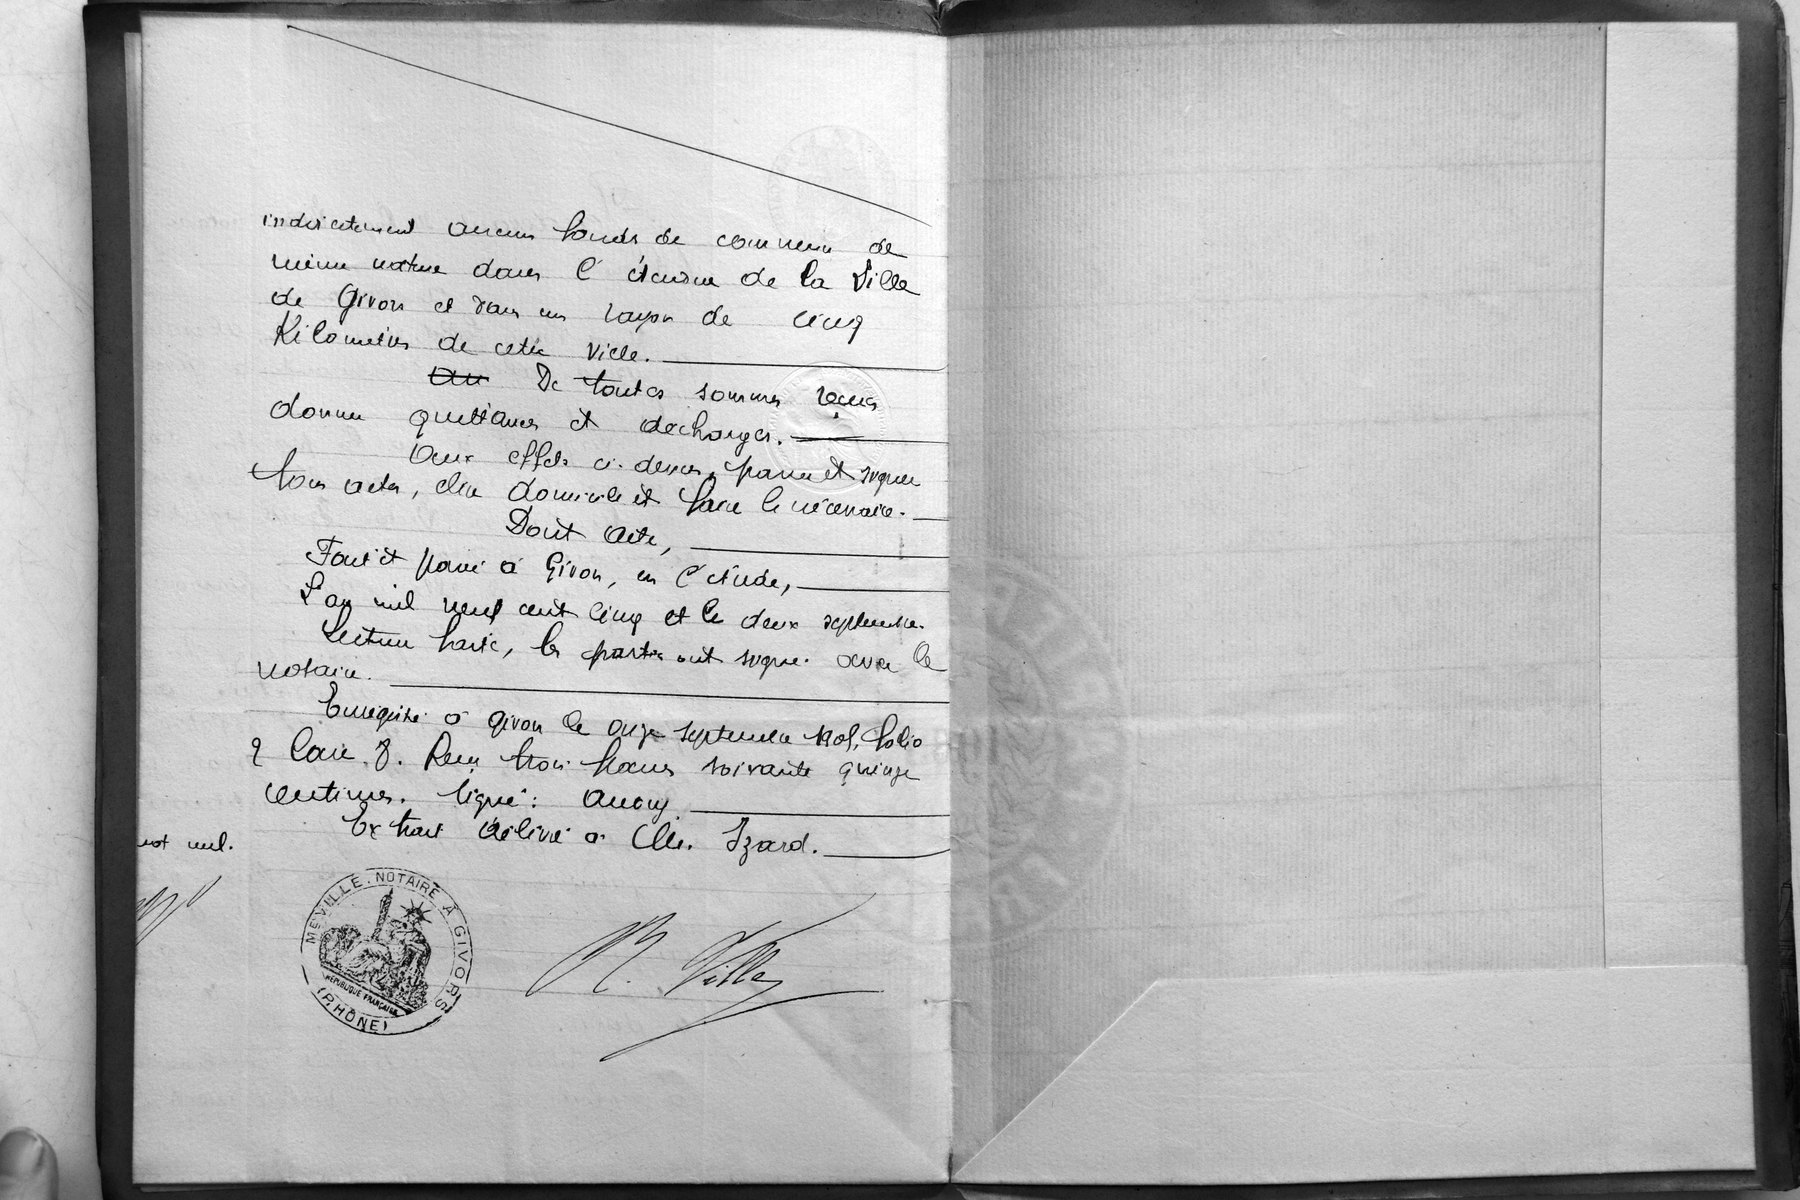 indirectement aucun fonds de commerce de
même nature dans l'étendue de la Ville
de Givors et dans un rayon de cinq
Kilomètres de cette ville.
De toutes sommes reçues
donner quittances et décharges.
Aux effets ci-dessus, passer et signer
tous actes, élire domicile et faire le nécessaire.
Dont acte,
Fait et passé à Givors, en l'étude,
L'an mil neuf cent cinq et le deux septembre.
Lecture faite, les parties ont signé avec le
notaire.
Enregistré à Givors le onze septembre 1905, folio
9 Case 8. Reçu trois francs soixante quinze
centimes. Signé:
Extrait délivré à Me. Izard.
mot nul.
Me VILLE. NOTAIRE À GIVORS
RÉPUBLIQUE FRANÇAISE
(RHÔNE)
R. Ville